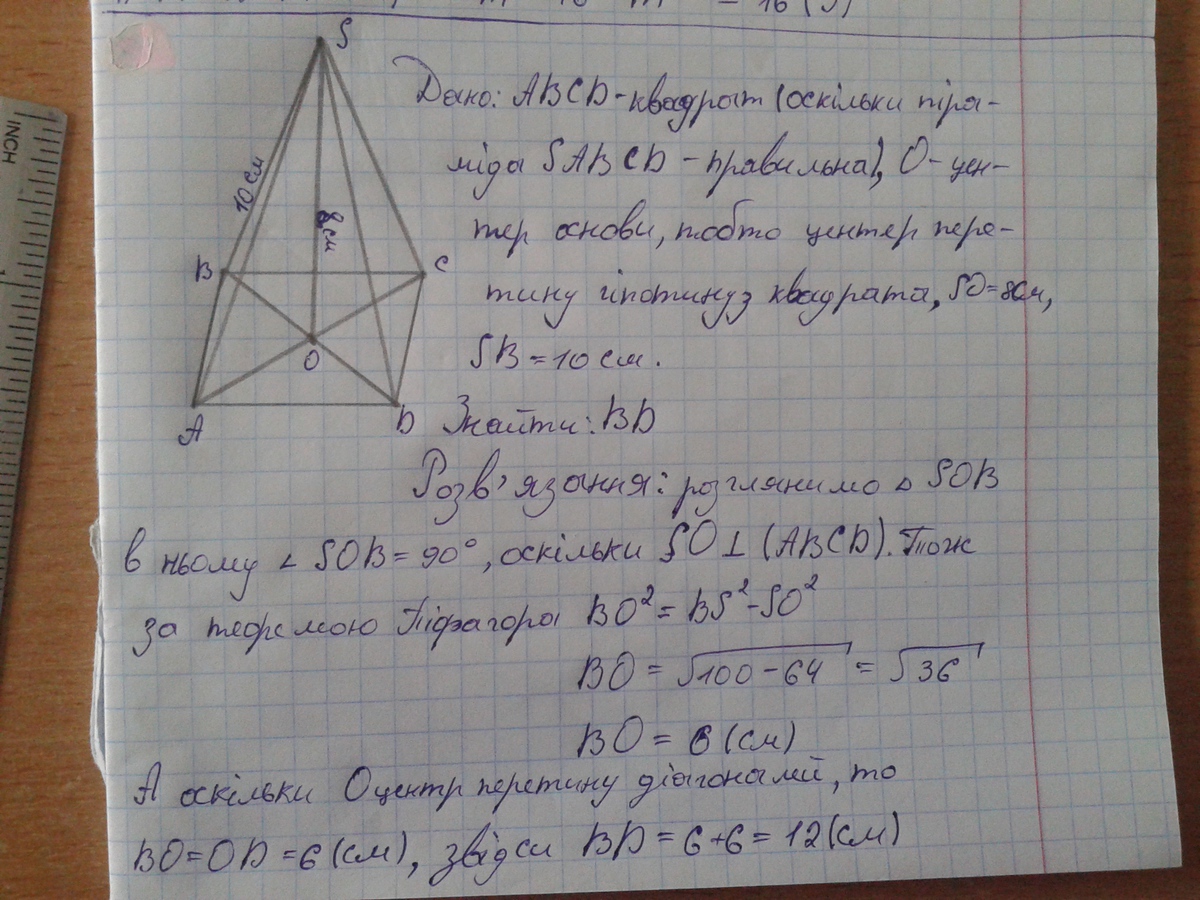 = 16 (
INCH
S
10 см
8см
B
C
O
A
D
Дано: ABCD - квадрат (оскільки піра-
міда SABCD - правильна), O - цен-
тер основи, тобто центер пере-
тину гіпотинуз квадрата, SO = 8см,
SB = 10 см.
Знайти: BD
Розв'язання: розглянимо △ SOB
в ньому ∠ SOB = 90°, оскільки SO ⊥ (ABCD). Тож
за теоремою Піфагора BO² = BS² - SO²
BO = √100 - 64 = √36
BO = 6 (см)
А оскільки O центр перетину діагоналей, то
BO = OD = 6 (см), звідси BD = 6 + 6 = 12 (см)